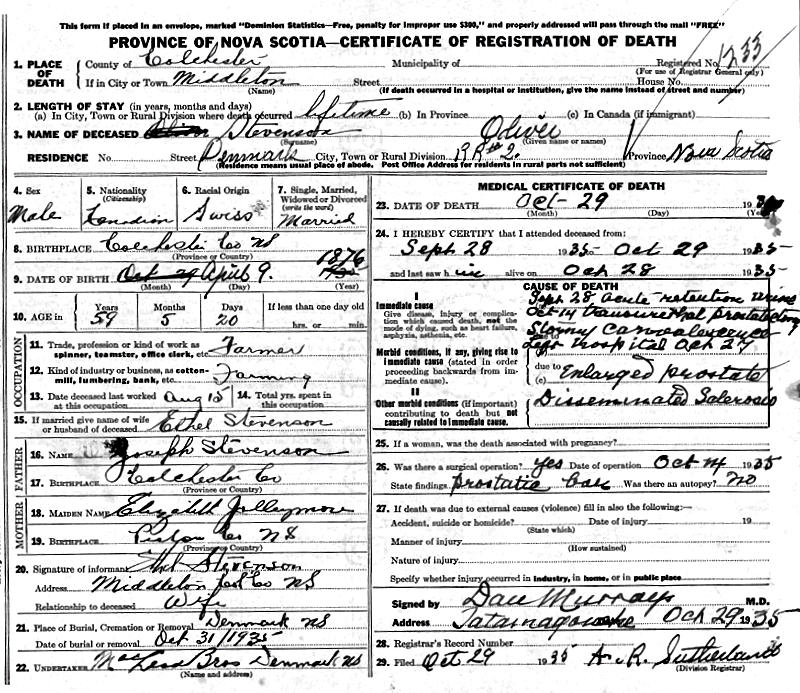 This form if placed in an envelope, marked "Dominion Statistics—Free, penalty for improper use $300," and properly addressed will pass through the mail "FREE"
PROVINCE OF NOVA SCOTIA—CERTIFICATE OF REGISTRATION OF DEATH
1. PLACE OF DEATH County of Colchester Municipality of Registered No. 1233
(For use of Registrar General only)
If in City or Town Middleton Street House No.
(Name) (If death occurred in a hospital or institution, give the name instead of street and number)
2. LENGTH OF STAY (in years, months and days)
(a) In City, Town or Rural Division where death occurred lifetime (b) In Province (c) In Canada (if immigrant)
3. NAME OF DECEASED Stevenson Oliver
(Surname) (Given name or names)
RESIDENCE No. Street Denmark City, Town or Rural Division RR # 2. Province Nova Scotia
(Residence means usual place of abode. Post Office Address for residents in rural parts not sufficient)
4. Sex Male
5. Nationality (Citizenship) Canadian
6. Racial Origin Swiss
7. Single, Married, Widowed or Divorced (write the word) Married
8. BIRTHPLACE Colchester Co NS
(Province or Country)
9. DATE OF BIRTH Oct 29 April 9. 1876 1935
(Month) (Day) (Year)
10. AGE in Years 59 Months 5 Days 20 If less than one day old hrs. or min.
OCCUPATION
11. Trade, profession or kind of work as spinner, teamster, office clerk, etc. Farmer
12. Kind of industry or business, as cotton-mill, lumbering, bank, etc. Farming
13. Date deceased last worked at this occupation Aug 15 14. Total yrs. spent in this occupation
15. If married give name of wife or husband of deceased Ethel Stevenson
FATHER
16. NAME Joseph Stevenson
17. BIRTHPLACE Colchester Co
(Province or Country)
MOTHER
18. MAIDEN NAME Elizabeth Jolleymore
19. BIRTHPLACE Pictou Co NS
(Province or Country)
20. Signature of informant Ethel Stevenson
Address Middleton Col Co NS
Relationship to deceased Wife
21. Place of Burial, Cremation or Removal Denmark NS
Date of burial or removal Oct 31 / 1935
22. UNDERTAKER MacLeod Bros Denmark NS
(Name and address)
MEDICAL CERTIFICATE OF DEATH
23. DATE OF DEATH Oct - 29 19
(Month) (Day)
24. I HEREBY CERTIFY that I attended deceased from:
Sept 28 1935 to Oct 29 1935
and last saw him alive on Oct 28 1935
CAUSE OF DEATH
I
Immediate cause
Give disease, injury or complication which caused death, not the mode of dying, such as heart failure, asphyxia, asthenia, etc.
Sept 28 acute retention urine
Oct 14 transurethral prostatectomy
Stormy Convalescence
Left hospital Oct 27
Morbid conditions, if any, giving rise to immediate cause (stated in order proceeding backwards from immediate cause).
due to
(c) Enlarged prostate
II
Other morbid conditions (if important) contributing to death but not causally related to immediate cause.
Disseminated Sclerosis
25. If a woman, was the death associated with pregnancy?
26. Was there a surgical operation? yes Date of operation Oct 14 1935
State findings Prostatic Was there an autopsy? No
27. If death was due to external causes (violence) fill in also the following:—
Accident, suicide or homicide? Date of injury 19
(State which)
Manner of injury
(How sustained)
Nature of injury
Specify whether injury occurred in industry, in home, or in public place
Signed by Dan Murray M.D.
Address Tatamagouche Oct 29 1935
28. Registrar's Record Number
29. Filed Oct 29 1935 A. R. Sutherland
(Division Registrar)